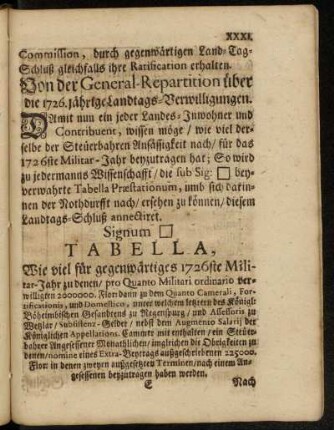 XXXI.
Commission, durch gegenwärtigen Land-Tag-
Schluß gleichfalls ihre Ratification erhalten.
Von der General-Repartition über
die 1726. jährige Landtags-Verwilligungen.
Damit nun ein jeder Landes-Inwohner und
Contribuent, wissen möge / wie viel der-
selbe der Steüerbahren Ansässigkeit nach / für das
1726ste Militar-Jahr beyzutragen hat; So wird
zu jedermanns Wissenschafft / die sub Sig: □ bey-
verwahrte Tabella Præstationum, umb sich darin-
nen der Nothdurfft nach / ersehen zu können / diesem
Landtags-Schluß annectiret.
Signum □
TABELLA,
Wie viel für gegenwärtiges 1726ste Mili-
tar-Jahr zu denen / pro Quanto Militari ordinario ver-
willigten 2000000. Flor: dann zu dem Quanto Camerali, For-
tificationis, und Domestico, unter welchem letztern des Königl:
Böheimbischen Gesandtens zu Regenspurg / und Assessoris zu
Wetzlar / Subsistenz-Gelder / nebst dem Augmento Salarij der
Königlichen Appellations-Cammer mit enthalten / ein Steüer-
bahrer Angesessener Monathlichen / imgleichen die Obrigkeiten zu
denen / nomine eines Extra-Beytrags außgeschriebenen 225000.
Flor: in denen zweyen außgesetzten Terminen / nach einem An-
gesessenen beyzutragen haben werden.
E Nach